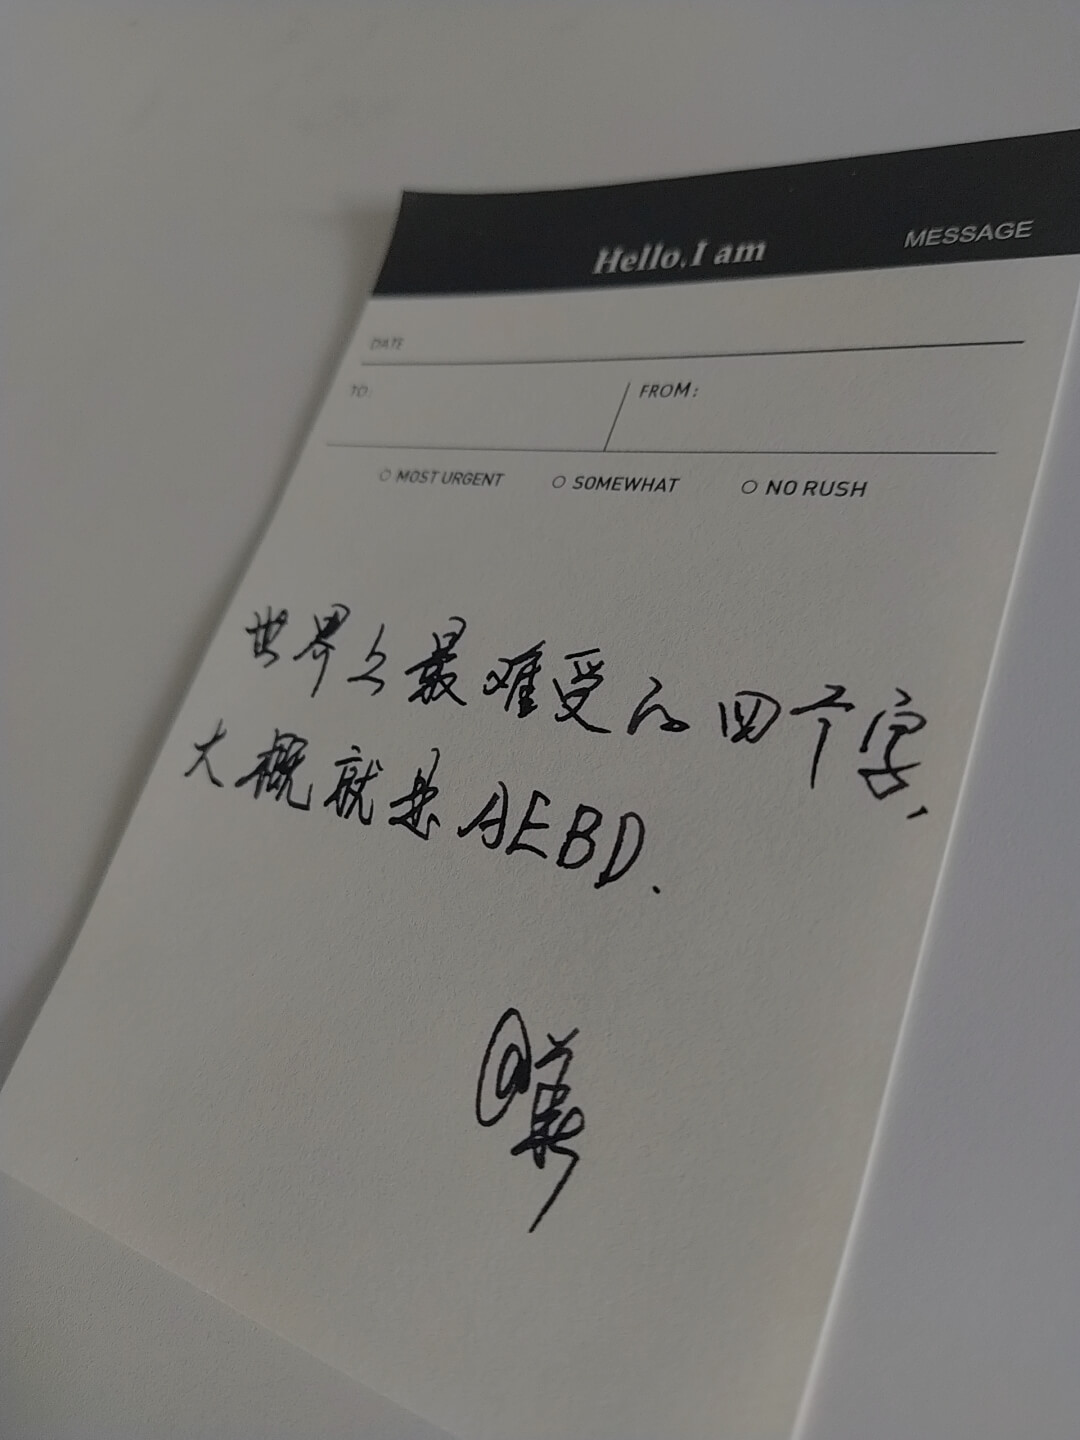 Hello.I am
MESSAGE
DATE
TO:
FROM:
MOST URGENT
SOMEWHAT
NO RUSH
世界上最难受的四个字、
大概就是AEBD.
@